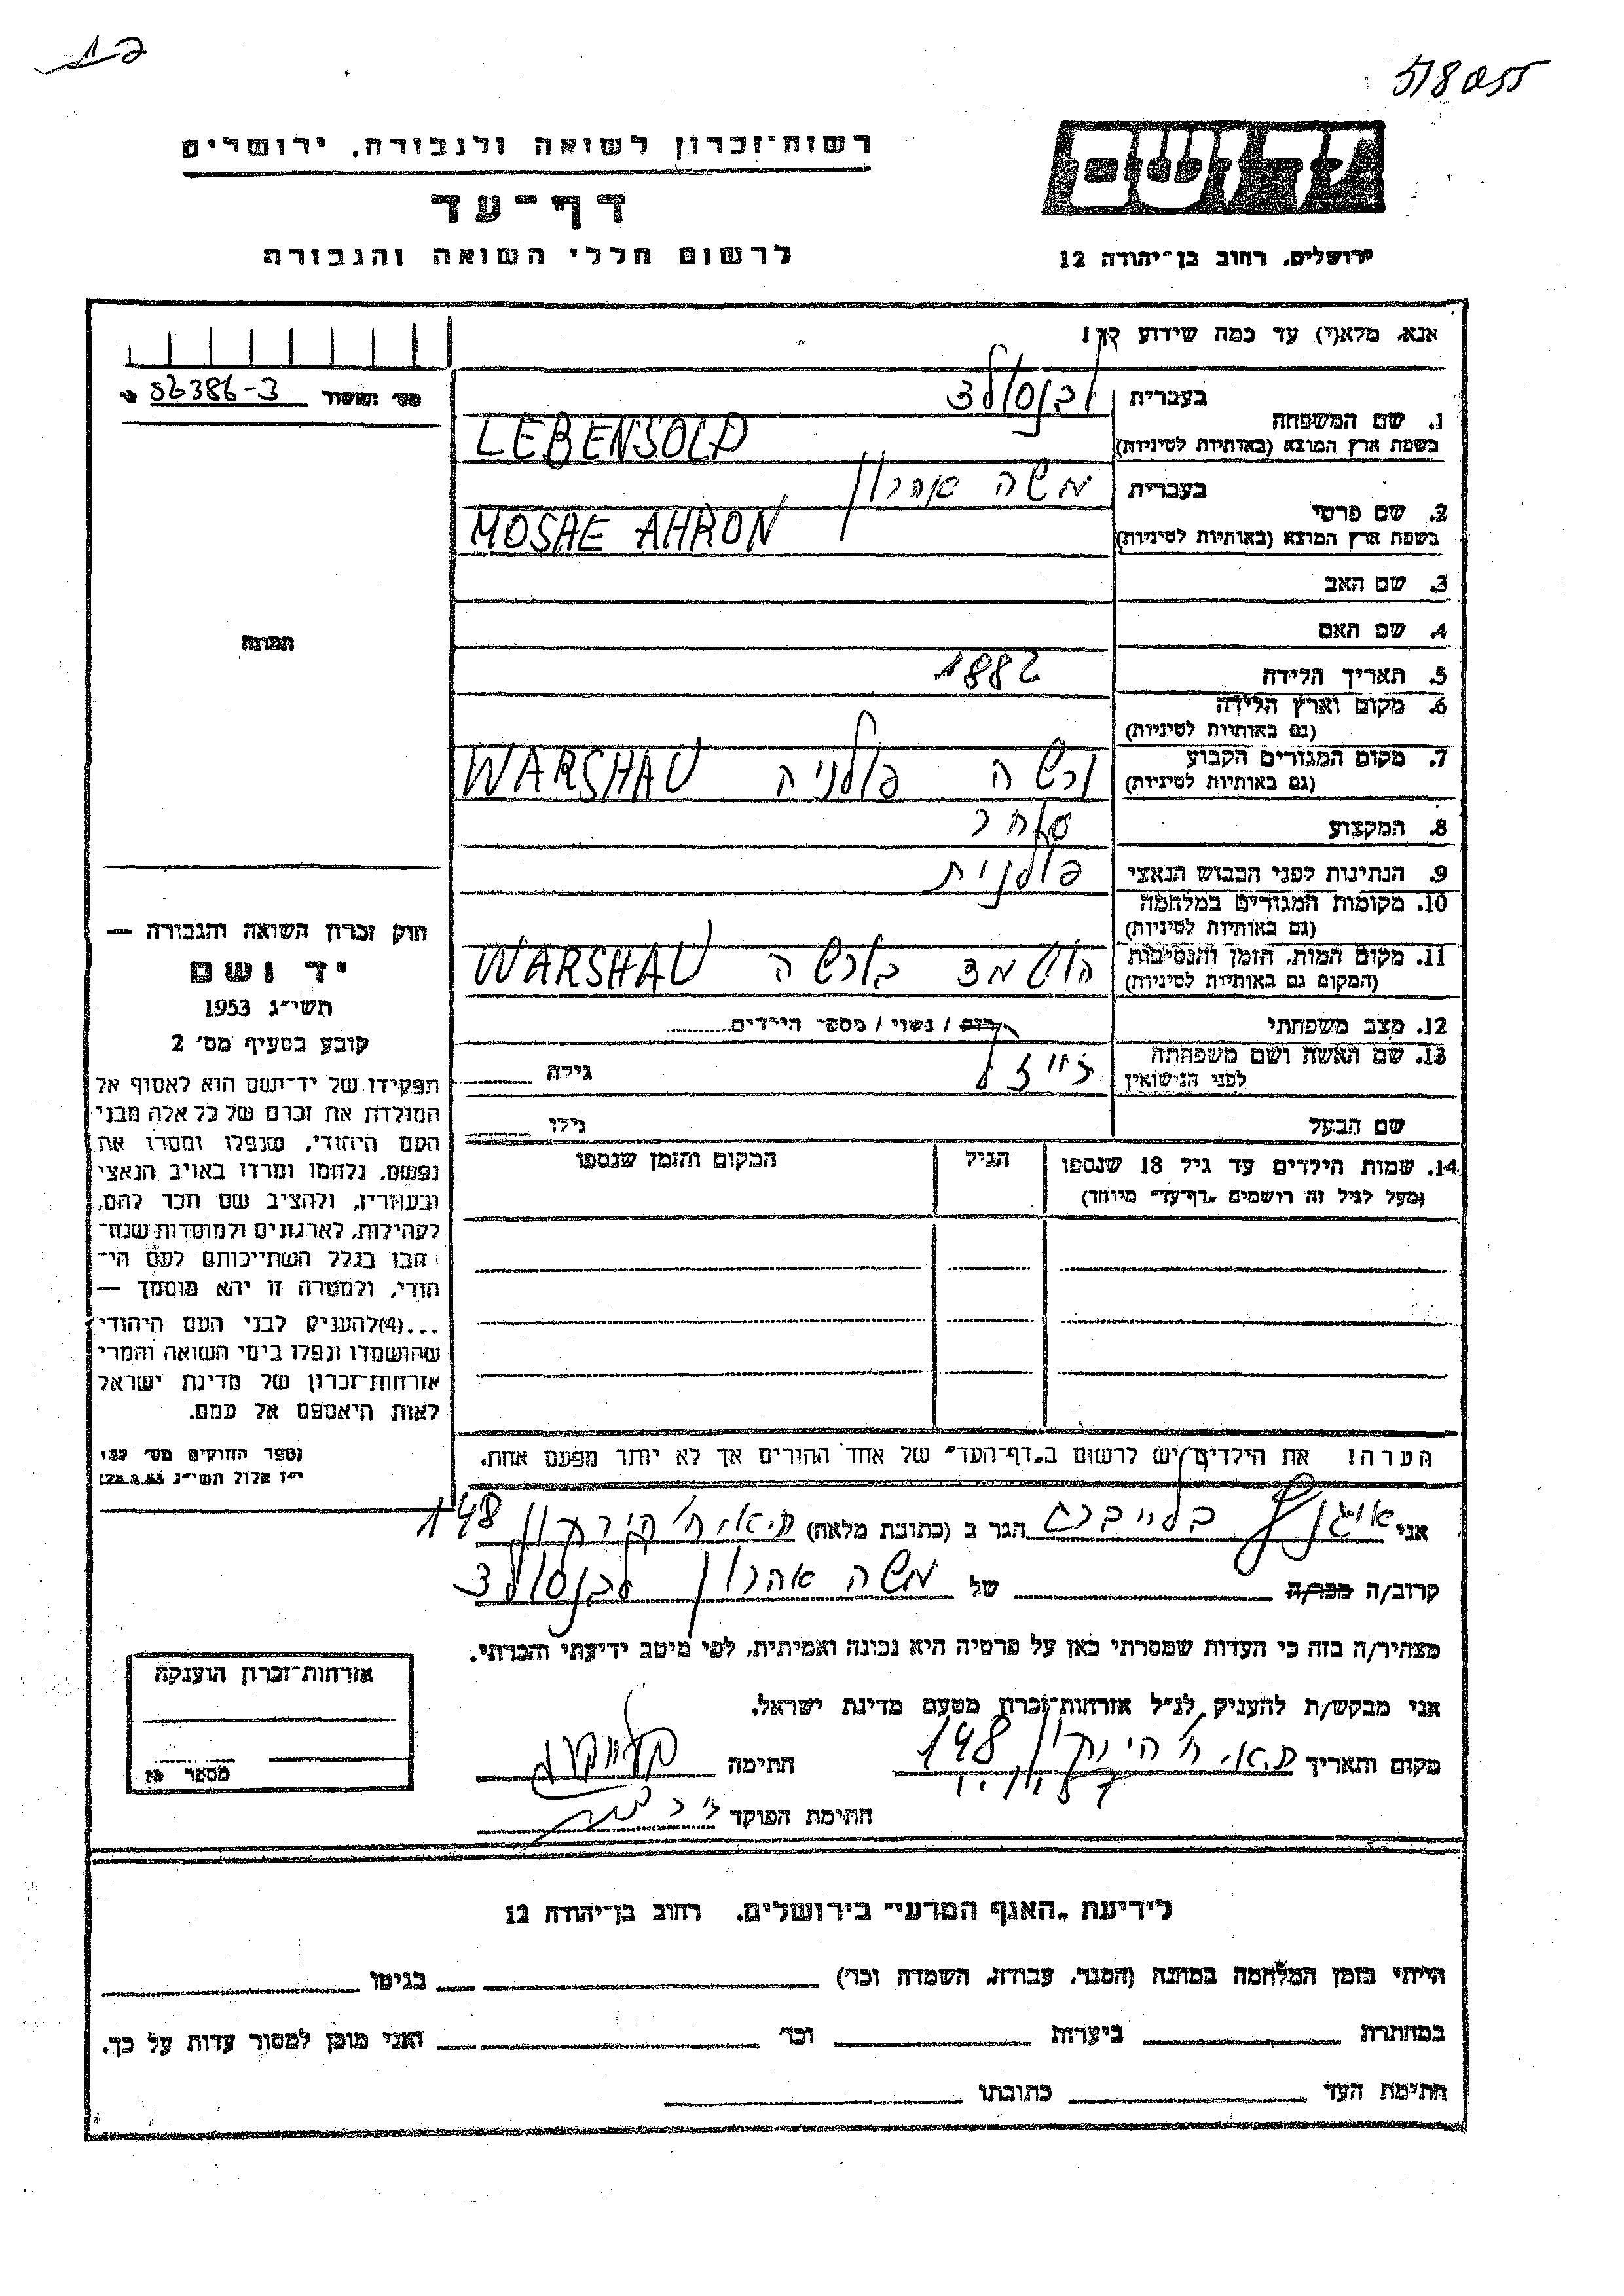 518055
רשות־זכרון לשואה ולגבורה, ירושלים
דף־עד
לרשום חללי השואה והגבורה
יד ושם
ירושלים, רחוב בן־יהודה 12
אנא, מלא(י) עד כמה שידוע לך!
56386-3
1. שם המשפחה
בעברית לבנסולד
בשפת ארץ המוצא (באותיות לטיניות) LEBENSOLD
2. שם פרטי
בעברית משה אהרון
בשפת ארץ המוצא (באותיות לטיניות) MOSHE AHRON
3. שם האב
4. שם האם
5. תאריך הלידה 1882
6. מקום וארץ הלידה
(גם באותיות לטיניות)
7. מקום המגורים הקבוע ורשה פולניה WARSHAU
(גם באותיות לטיניות)
8. המקצוע סוחר
9. הנתינות לפני הכבוש הנאצי פולנית
10. מקומות המגורים במלחמה
(גם באותיות לטיניות)
11. מקום המות, הזמן והנסיבות הושמד בורשה WARSHAU
(המקום גם באותיות לטיניות)
12. מצב משפחתי רווק / נשוי / מספר הילדים
13. שם האשה ושם משפחתה
לפני הנישואין
גילה
שם הבעל גילו
14. שמות הילדים עד גיל 18 שנספו הגיל המקום והזמן שנספו
(מעל לגיל זה רושמים „דף־עד״ מיוחד)
הערה! את הילדים יש לרשום ב„דף־העד״ של אחד ההורים אך לא יותר מפעם אחת.
התמונה
חוק זכרון השואה והגבורה —
יד ושם
תשי״ג 1953
קובע בסעיף מס׳ 2
תפקידו של יד־ושם הוא לאסוף אל
המולדת את זכרם של כל אלה מבני
העם היהודי, שנפלו ומסרו את
נפשם, נלחמו ומרדו באויב הנאצי
ובעוזריו, ולהציב שם וזכר להם,
לקהילות, לארגונים ולמוסדות שנח־
רבו בגלל השתייכותם לעם הי־
הודי, ולמטרה זו יהא מוסמך —
...(4)להעניק לבני העם היהודי
שהושמדו ונפלו בימי השואה והמרי
אזרחות־זכרון של מדינת ישראל
לאות היאספם אל עמם.
(ספר החוקים מס׳ 132
י״ז אלול תשי״ג 28.8.53)
אני בלייברג הגר ב (כתובת מלאה) ת״א, הירקון 148
קרוב/ה מכר/ה של משה אהרון לבנסולד
מצהיר/ה בזה כי העדות שמסרתי כאן על פרטיה היא נכונה ואמיתית, לפי מיטב ידיעתי והכרתי.
אני מבקש/ת להעניק לנ״ל אזרחות־זכרון מטעם מדינת ישראל.
מקום ותאריך ת״א, הירקון 148 חתימה
חתימת הפוקד
אזרחות־זכרון הוענקה
מספר
לידיעת „האגף המדעי״ בירושלים, רחוב בן־יהודה 12
הייתי בזמן המלחמה במחנה (הסגר, עבודה, השמדה וכו׳) בגיטו
במחתרת ביערות וכו׳ ואני מוכן למסור עדות על כך.
חתימת העד כתובתו